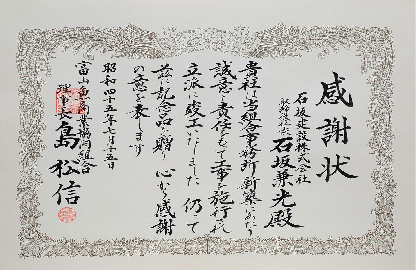 感謝状
石坂建設株式会社
取締役社長 石坂兼光殿
貴社は当組合事務所新築にあたり
誠意と責任をもって工事を施行され
立派に竣工いたしました 仍って
茲に記念品を贈り心から感謝
の意を表します
昭和四十五年七月十五日
富山魚商業協同組合
理事長 島松信